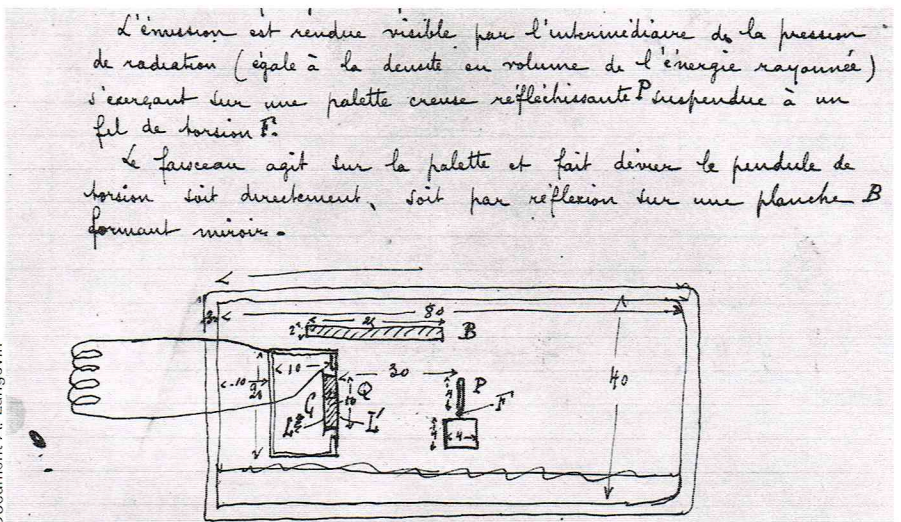 L'émission est rendue visible par l'intermédiaire de la pression
de radiation (égale à la densité en volume de l'énergie rayonnée)
s'exerçant sur une palette creuse réfléchissante P suspendue à un
fil de torsion F.
Le faisceau agit sur la palette et fait dévier le pendule de
torsion soit directement, soit par réflexion sur une planche B
formant miroir.
80
2
B
10
30
10
20
Q
10
P
4
F
40
G
L
L'
4
4